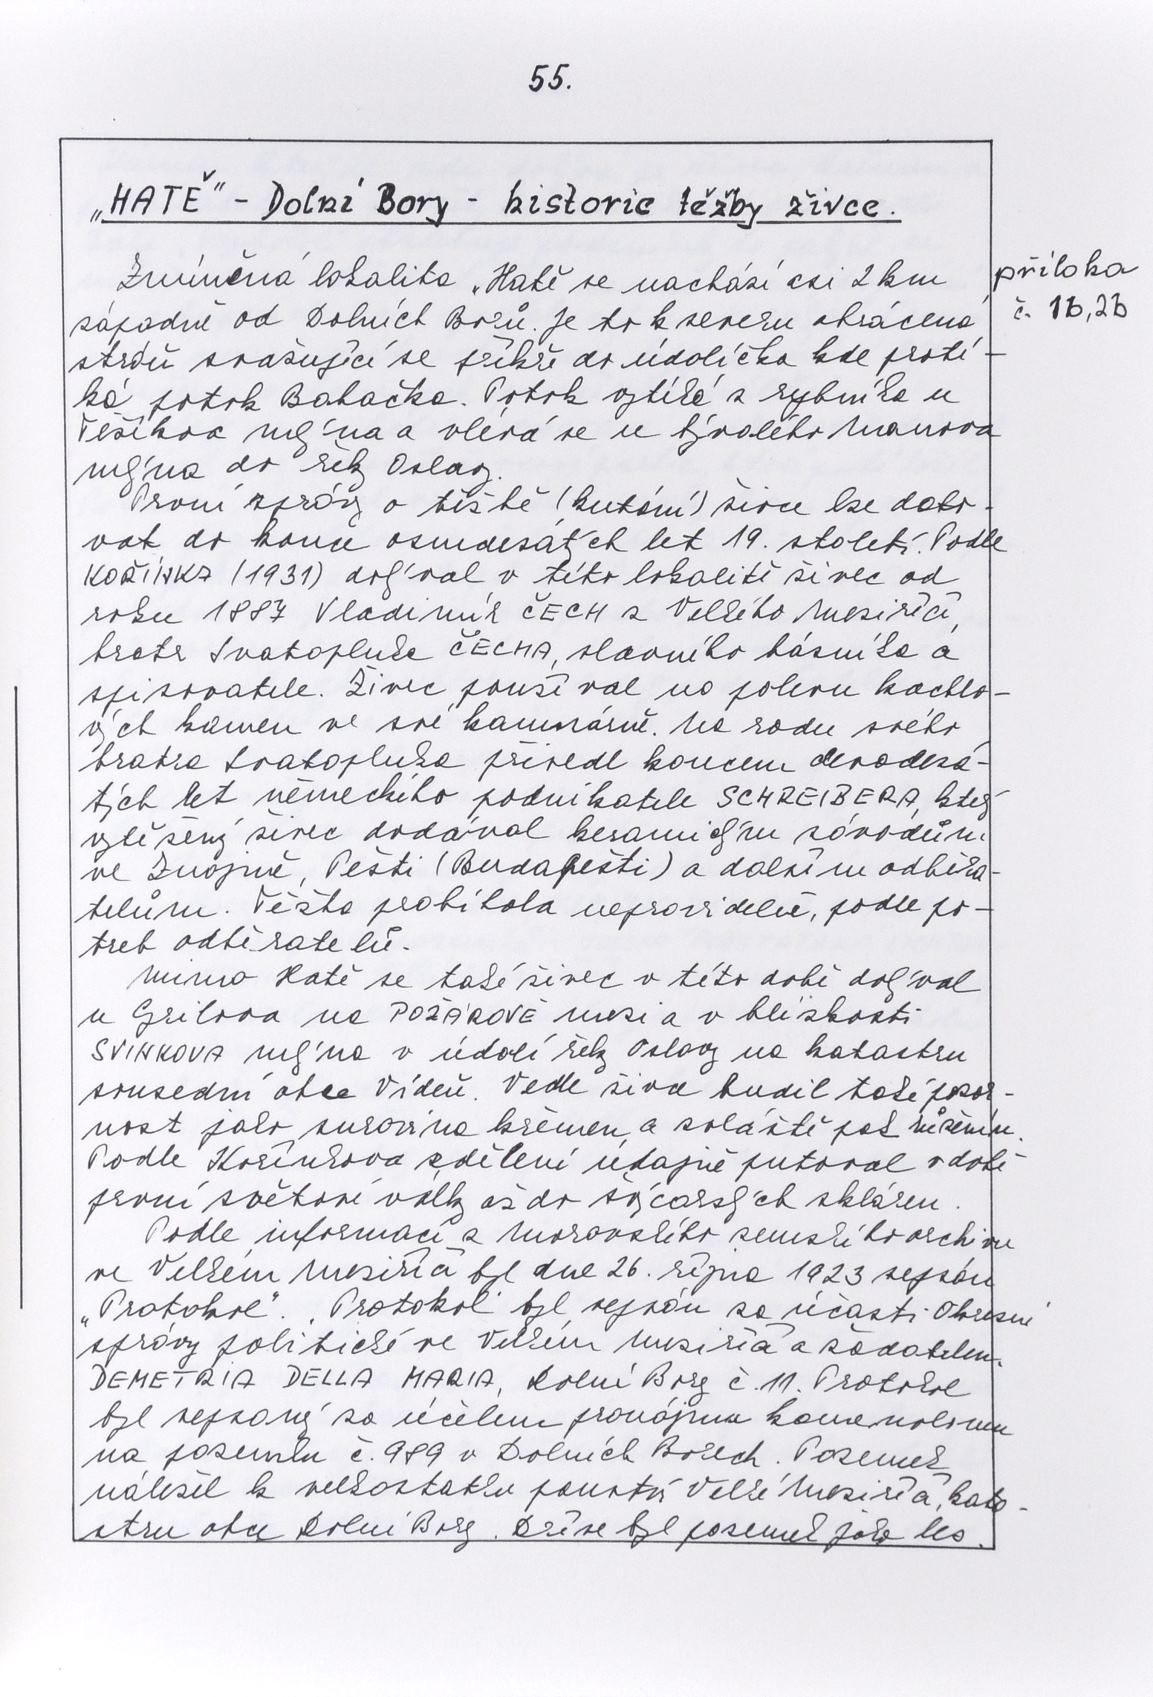 55.
„HATĚ" - Dolní Bory - historie těžby živce.
Zmíněná lokalita „Hatě se nachází asi 2 km
příloha
západně od Dolních Borů. Je to k severu obrácená
č. 1b, 2b
stráň svažující se příkře do údolíčka kde proté-
ká potok Babačka. Potok vytéká z rybníka u
Těšíkova mlýna a vlévá se u bývalého Manova
mlýna do řeky Oslavy.
První zprávy o těžbě (kutání) živce lze dato-
vat do konce osmdesátých let 19. století. Podle
KOŘÍNKA (1931) dobýval v této lokalitě živec od
roku 1887 Vladimír ČECH z Velkého Meziříčí,
bratr Svatopluka ČECHA, slavného básníka a
spisovatele. Živec používal na polevu kachlo-
vých kamen ve své kamnárně. Na radu svého
bratra Svatopluka přivedl koncem devadesá-
tých let německého podnikatele SCHREIBERA, který
vytěžený živec dodával keramickým závodům
ve Znojmě, Pešti (Budapešti) a dalším odběra-
telům. Těžba probíhala nepravidelně, podle po-
treb odběratelů.
Mimo Hatě se také živec v této době dobýval
u Grilova na POŽÁROVĚ mezi a v blízkosti
SVINKOVA mlýna v údolí řeky Oslavy na katastru
sousední obce Vídeň. Vedle živce budil také pozor-
nost jako surovina křemen, a zvláště pak růženín.
Podle Kořínkova sdělení údajně putoval v době
první světové války až do švýcarských skláren.
Podle informací z Moravského zemského archivu
ve Velkém Meziříčí byl dne 26. října 1923 sepsán
„Protokol". Protokol byl sepsán za účasti Okresní
správy politické ve Velkém Meziříčí a žadatelem
DEMETRIA DELLA MARIA, Dolní Bory č. 11. Protokol
byl sepsaný za účelem pronájmu kamenolomu
na pozemku č. 989 v Dolních Borech. Pozemek
náležel k velkostatku panství Velké Meziříčí, kata-
stru obce Dolní Bory. Dříve byl pozemek jako les.